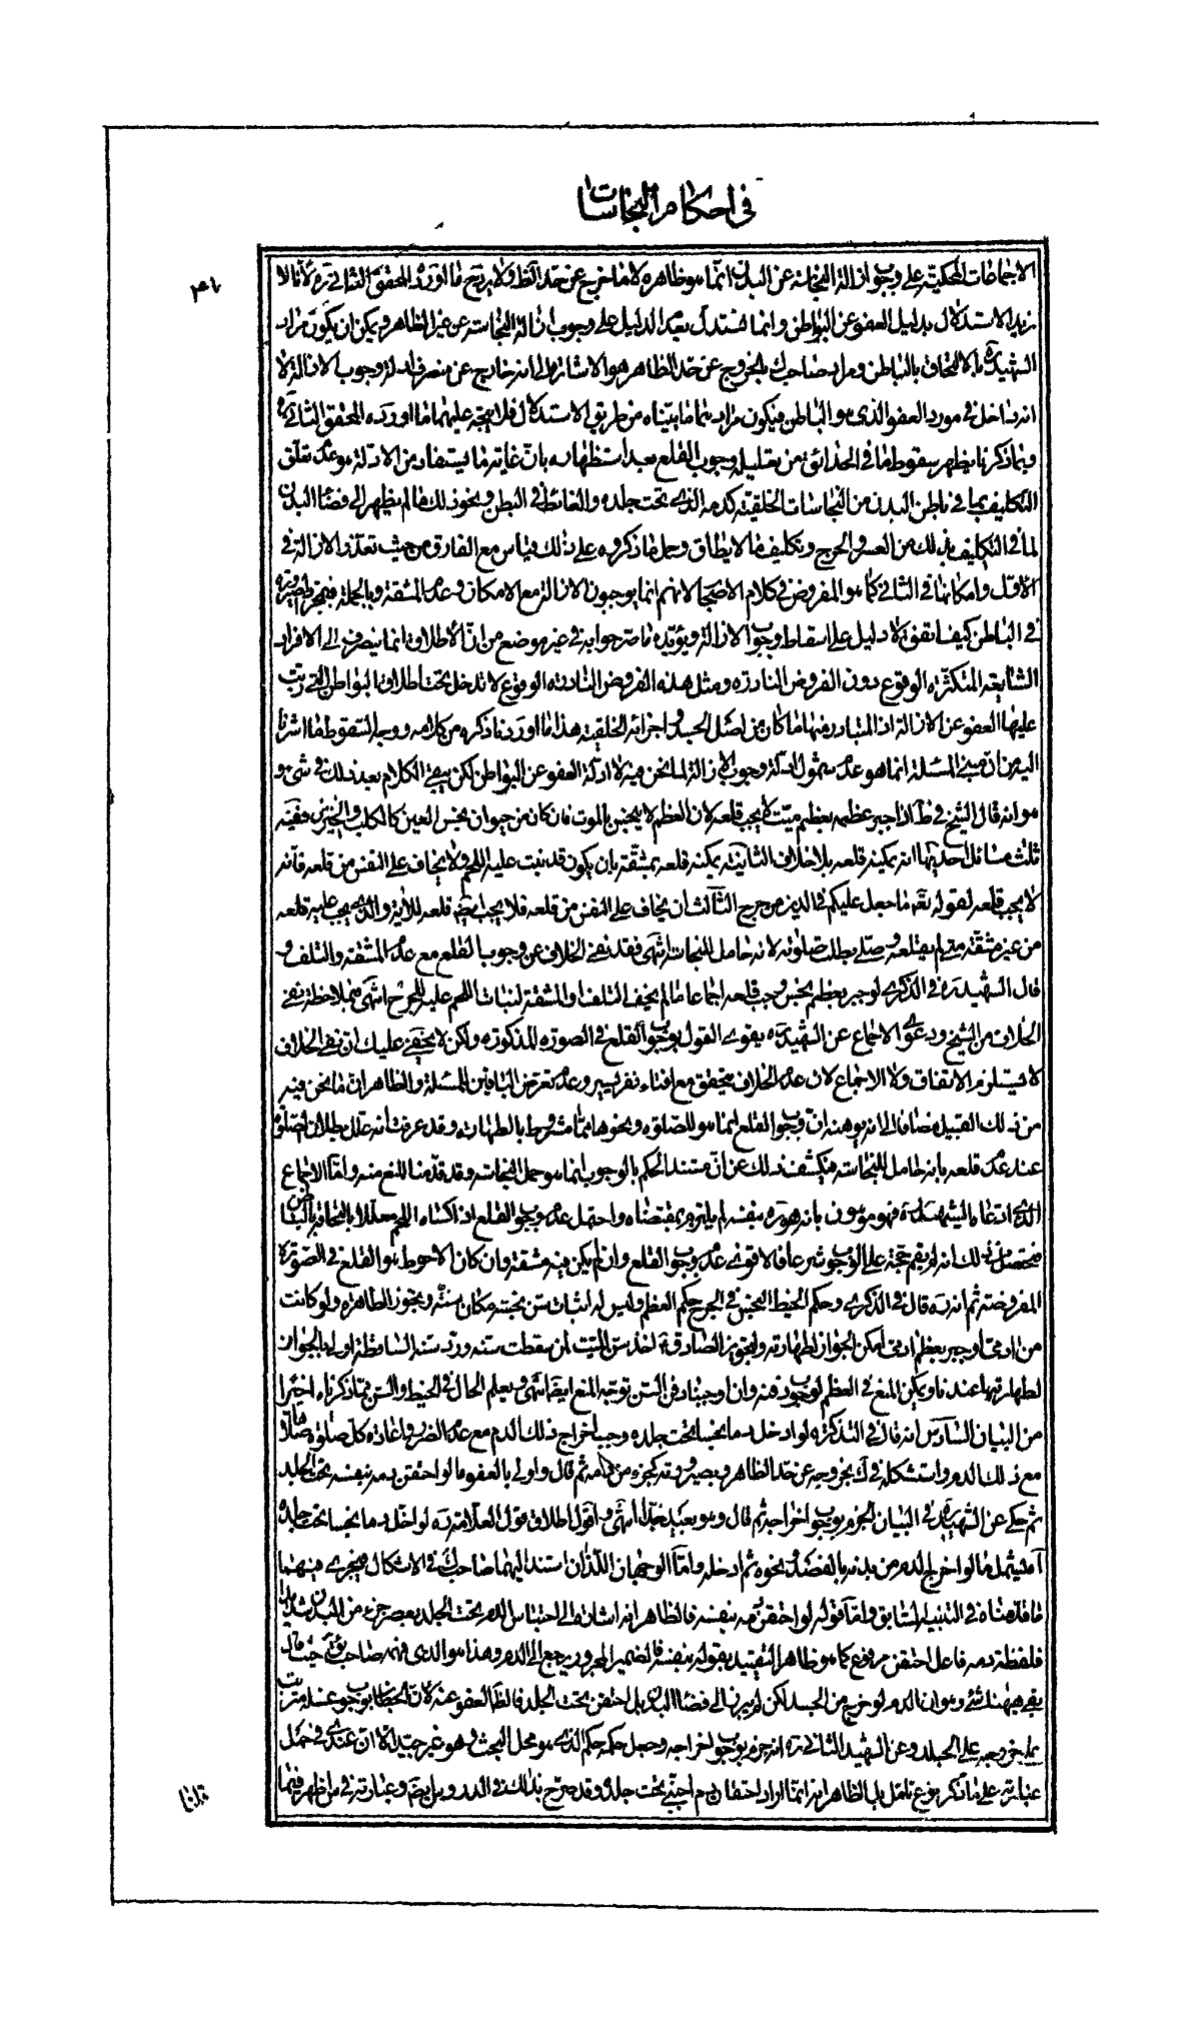 في احكام النجاسات
الاجماعات المحكية على وجوب ازالة النجاسة عن البدن انما هو ظاهره لا ما خرج عن حد الظ ولا يرتج ما اورده المحقق الثاني ره لأنا لا
نريد الاستدلال بدليل العفو عن البواطن وانما نستدل بعدم الدليل على وجوب ازالة النجاسة عن غير الظاهر ويمكن ان يكون مراد
الشهيد ره بالالتحاق بالباطن ومراد صاحب ك بالخروج عن حد الظاهر هو الاشارة الى انه خارج عن منصرف ادلة وجوب الازالة لا
انه داخل في مورد العفو الذي هو الباطن فيكون مرادهما ما بيناه من طريق الاستدلال فلا يتجه عليهما ما اورده المحقق الثاني ره
وبما ذكرنا يظهر سقوط ما في الحدائق من تعليل وجوب القلع بعد استظهاره بان غاية ما يستفاد من الادلة هو عدم تعلق
التكليف بما في باطن البدن من النجاسات الخلقية كدمه الذي تحت جلده والغائط في البطن ونحو ذلك ما لم يظهر الى فضاء البدن
لما في التكليف بذلك من العسر والحرج وتكليف ما لا يطاق وحمل ما ذكروه على ذلك قياس مع الفارق من حيث تعذر الازالة في
الاول وامكانها في الثاني كما هو المفروض في كلام الاصحاب لانهم انما يوجبون الازالة مع الامكان وعدم المشقة وبالجملة فمجرد صيرورته
في الباطن كيف اتفق لا دليل على اسقاط وجوب الازالة ويؤيده ما صرحوا به في غير موضع من ان الاطلاق انما ينصرف الى الافراد
الشايعة المتكثرة الوقوع دون الفروض النادرة ومثل هذه الفروض النادرة الوقوع لا تدخل تحت اطلاق البواطن التي رتب
عليها العفو عن الازالة اذ المتبادر منها ما كان من اصل الجسد واجزائه الخلقية هذا ما اوردنا ذكره من كلامه ووجه السقوط ما اشرنا
اليه من ان مبنى المسئلة انما هو عدم شمول ادلة وجوب الازالة لما نحن فيه لا ادلة العفو عن البواطن لكن يبقى الكلام بعد ذلك في شئ و
هو انه قال الشيخ في ط اذا جبر عظمه بعظم ميت لا يجب قلعه لان العظم لا ينجس بالموت فان كان من حيوان نجس العين كالكلب والخنزير ففيه
ثلث مسائل احديها انه يمكنه قلعه بلا خلاف الثانية يمكنه قلعه بمشقة بان يكون قد نبت عليه اللحم ولا يخاف على النفس من قلعه فانه
لا يجب قلعه لقوله تعه ما جعل عليكم في الدين من حرج الثالث ان يخاف على النفس من قلعه فلا يجب ايضا قلعه للاية والذي يجب عليه قلعه
من غير مشقة متى لم يقلعه وصلى بطلت صلوته لانه حامل للنجاسة انتهى فقد نفى الخلاف عن وجوب القلع مع عدم المشقة والتلف و
قال الشهيد ره في الذكرى لو جبر بعظم نجس وجب قلعه اجماعا ما لم يخف التلف او المشقة لنبات اللحم عليه للحرج انتهى فبملاحظة نفي
الخلاف من الشيخ ودعوى الاجماع عن الشهيد ره يقوى القول بوجوب القلع في الصورة المذكورة ولكن لا يخفى عليك ان نفي الخلاف
لا يستلزم الاتفاق ولا الاجماع لان عدم الخلاف يتحقق مع افتاء نفر يسير وعدم تعرض الباقين للمسئلة والظاهر ان ما نحن فيه
من ذلك القبيل مضافا الى انه يوهنه ان وجوب القلع انما هو للصلوة ونحوها مما هو مشروط بالطهارة وقد عرفت انه علل بطلان الصلوة
عند عدم قلعه بانه حامل للنجاسة فيكشف ذلك عن ان مستند الحكم بالوجوب انما هو حمل النجاسة وقد قدمنا المنع منه واما الاجماع
الذي ادعاه الشهيد ره فهو موهون بانه هو ره بنفسه لم يلتزم بمقتضاه واحتمل عدم وجوب القلع اذا اكتساه اللحم معللا بالتحاقه بالباطن
فتحصل من ذلك انه لم يقم حجة على الوجوب شرعا فالاقوى عدم وجوب القلع وان لم يكن فيه مشقة وان كان الاحوط هو القلع في الصورة
المفروضة ثم انه ره قال في الذكرى وحكم الخيط النجس في الجرح حكم العظم وليس له اثبات سن نجسة مكان سنه ويجوز الطاهرة ولو كانت
من ادمي او جبر بعظم ادمي امكن الجواز لطهارته ولتجويز الصادق ع اخذ سن الميت لمن سقطت سنه ورد سنه الساقطة اولى بالجواز
لطهارتها عندنا ويمكن المنع في العظم لوجوب دفنه وان اوجبنا دفن السن توجه المنع ايضا انتهى ويعلم الحال في الخيط والسن مما ذكرناه اخيرا
من البيان السادس انه قال في التذكرة لو ادخل دما نجسا تحت جلده وجب اخراج ذلك الدم مع عدم الضرر واعادة كل صلوة صلاها
مع ذلك الدم واستشكله في ك بخروجه عن حد الظاهر وبصيرورته كجزء من دمه ثم قال واولى بالعفو ما لو احتقن دمه بنفسه تحت الجلد
ثم حكى عن الشهيد ره في البيان الجزم بوجوب اخراجه ثم قال وهو بعيد جدا انتهى واقول اطلاق قول العلامة ره لو ادخل دما نجسا تحت جلده
آه يشمل ما لو اخرج الدم من بدنه بالفصد ونحوه ثم ادخله واما الوجهان اللذان استند اليهما صاحب ك في الاشكال فيجري فيهما
ما قدمناه في التنبيه السابق واما قوله لو احتقن دمه بنفسه فالظاهر انه اشارة الى احتباس الدم تحت الجلد بعصر جزء من البدن شديدا
فلفظة دمه فاعل احتقن مرفوع كما هو ظاهر التقييد بقوله بنفسه فالضمير المجرور يرجع الى الدم وهذا هو الذي فهمه صاحب ئق حيث قال
بقي هيهنا شئ وهو ان الدم لو خرج من الجسد لكن لم يبرز الى فضاء البدن بل احتقن تحت الجلد فالظ العفو عنه لان الخطاب بوجوب غسله مترتب
على خروجه على الجلد وعن الشهيد الثاني ره انه جزم بوجوب اخراجه وجعل حكمه حكم الذي هو محل البحث وهو غير جيد الا ان عندي في حمل
عبارته على ما ذكر نوع تامل بل الظاهر انه انما اراد احتقان دم اجنبي تحت جلده وقد صرح بذلك في الدروس ايضا وعبارته في س اظهر فيما
قلنا